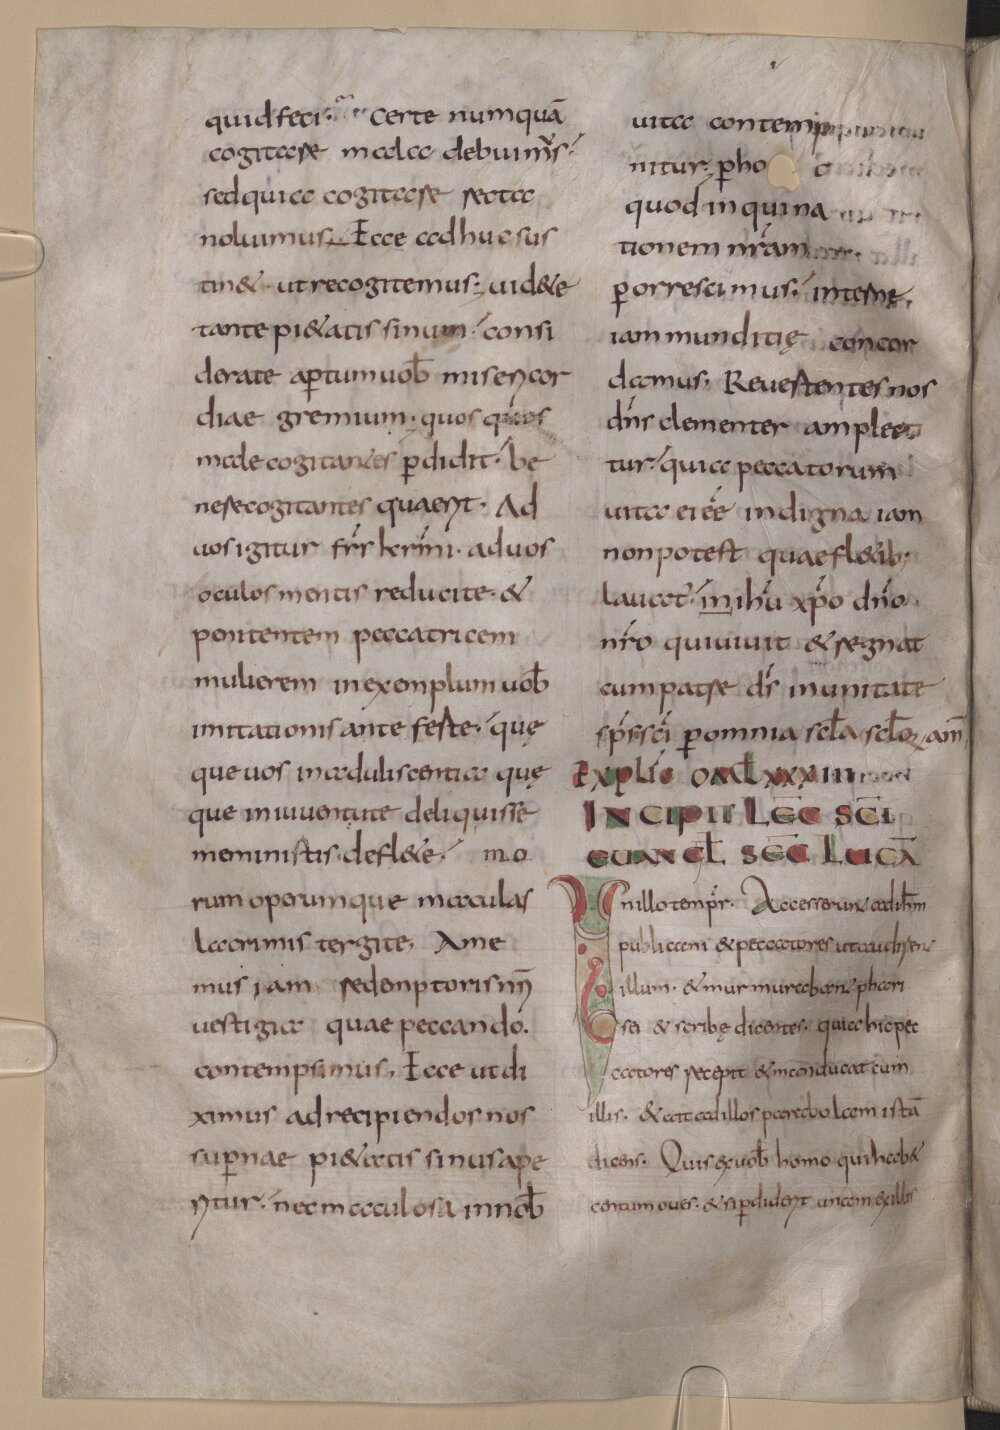 quid feci. Certe numquā
cogitasse mala debuim͛s.
sed quia cogitasse recta
noluimus. Ecce adhuc sus
tin&. ut recogitemus. uid&e
tante pi&atis sinum. consi
derate aꝑtum uob̄ misericor
diae gremium. quos quos
male cogitantes ꝑdidit. be
ne recogitantes quaerit. Ad
uos igitur fr̄s kr̄imi. ad uos
oculos mentis reducite. &
penitentem peccatricem
mulierem in exemplum uob̄
imitationis ante ferte. quę
que uos in aduliscentia quę
que in iuuentute deliquisse
meministis. defl&e. mo
rum operumque maculas
lacrimis tergite. Ame
mus iam redemptoris nr̄i
uestigia quae peccando.
contempsimus. Ecce ut di
ximus ad recipiendos nos
suꝑnae pi&atis sinus ape
ritur. nec maculosa in nob̄
uita contemp
nitur. ꝑ ho o
quod inquina
tionem nr̄am
ꝑorrescimus. interne.
iam munditię concor
damus. Reuertentes nos
dn̄s clementer amplec
tur. quia peccatorum
uita ei ee͛ indigna iam
non potest quae fl&ib;
lauat. in ihū xp̄o dn̄o
nr̄o qui uiuit & regnat
cum patre d͞s in unitate
sp̄s sc̄i ꝑ omnia scl̄a scl̄oꝝ am̄
Explic̄ omel̄ lxxxiii
INCIPIT LEC̄ SC̄I
EUANGL̄ SEC̄ LUCĀ
In illo temp͛r. Accesserunt ad ih̄m
publicani & peccatores ut audirent
illum. & murmurabant phari
sei & scribę dicentes. quia hic pec
catores recepit & manducat cum
illis. & ait ad illos parabolam istā
dicens. Quis ex uob̄ homo qui hab&
centum oues. & si ꝑdiderit unam ex illis